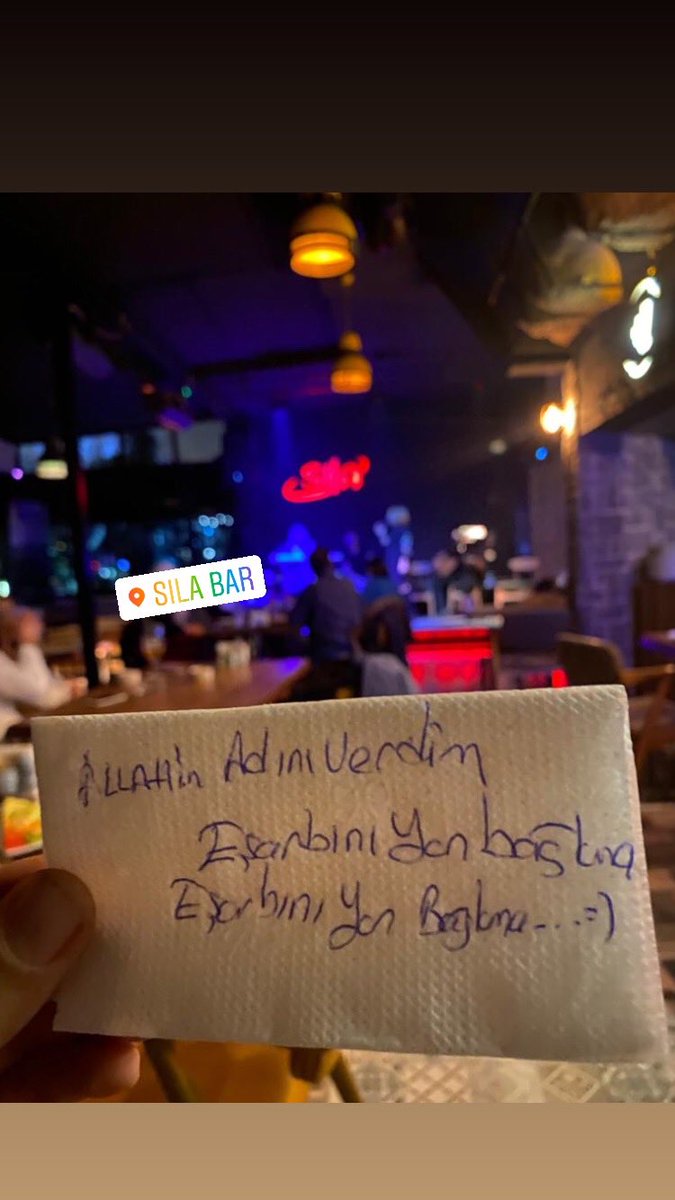 Sıla
SILA BAR
ALLAH'ın Adını Verdim
Eşarbını Yan bağlama
Eşarbını Yan Bağlama--...=)